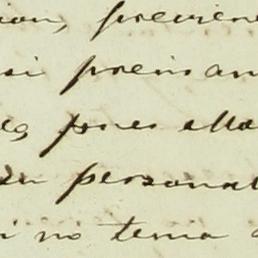 ion, previene
si precisam
es, pues ella
su personal
i no tenia a